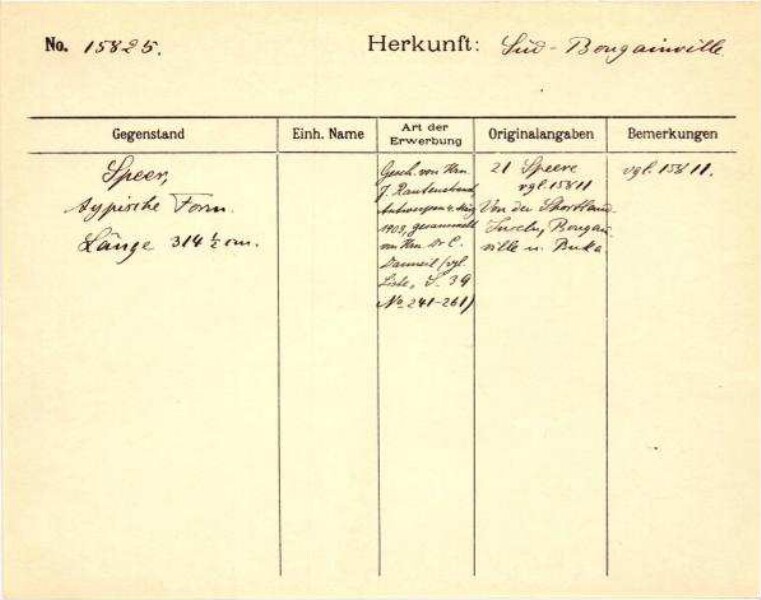 No. 15825. Herkunft: Süd-Bougainville
Gegenstand
Einh. Name
Art der
Erwerbung
Originalangaben
Bemerkungen
Speer,
typische Form.
Länge 314 1/2 cm.
Gesch. von Hrn
J.
Antwerpen 4. März
1909, gesammelt
von Hrn Dr C.
Danneil (vgl.
Liste, S. 39
No 241-261)
21 Speere
vgl. 15811
Von der Shortland
Inseln, Bougain
ville u. Buka.
vgl. 15811.